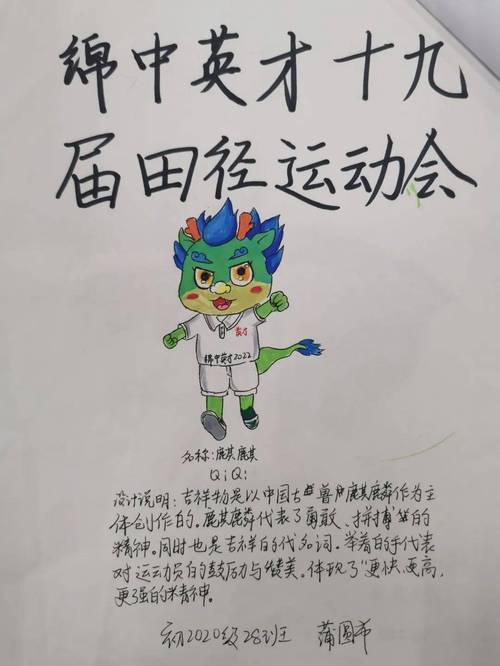 绵中英才十九
届田径运动会
英才
绵中英才2022
名称:麒麒
QiQi
设计说明:吉祥物是以中国古兽麒麟作为主
体创作的。麒麟代表了勇敢、拼搏的
精神。同时也是吉祥的代名词。举着的手代表
对运动员的鼓励与赞美。体现了“更快、更高,
更强的精神。
初2020级28班 蒲圆希